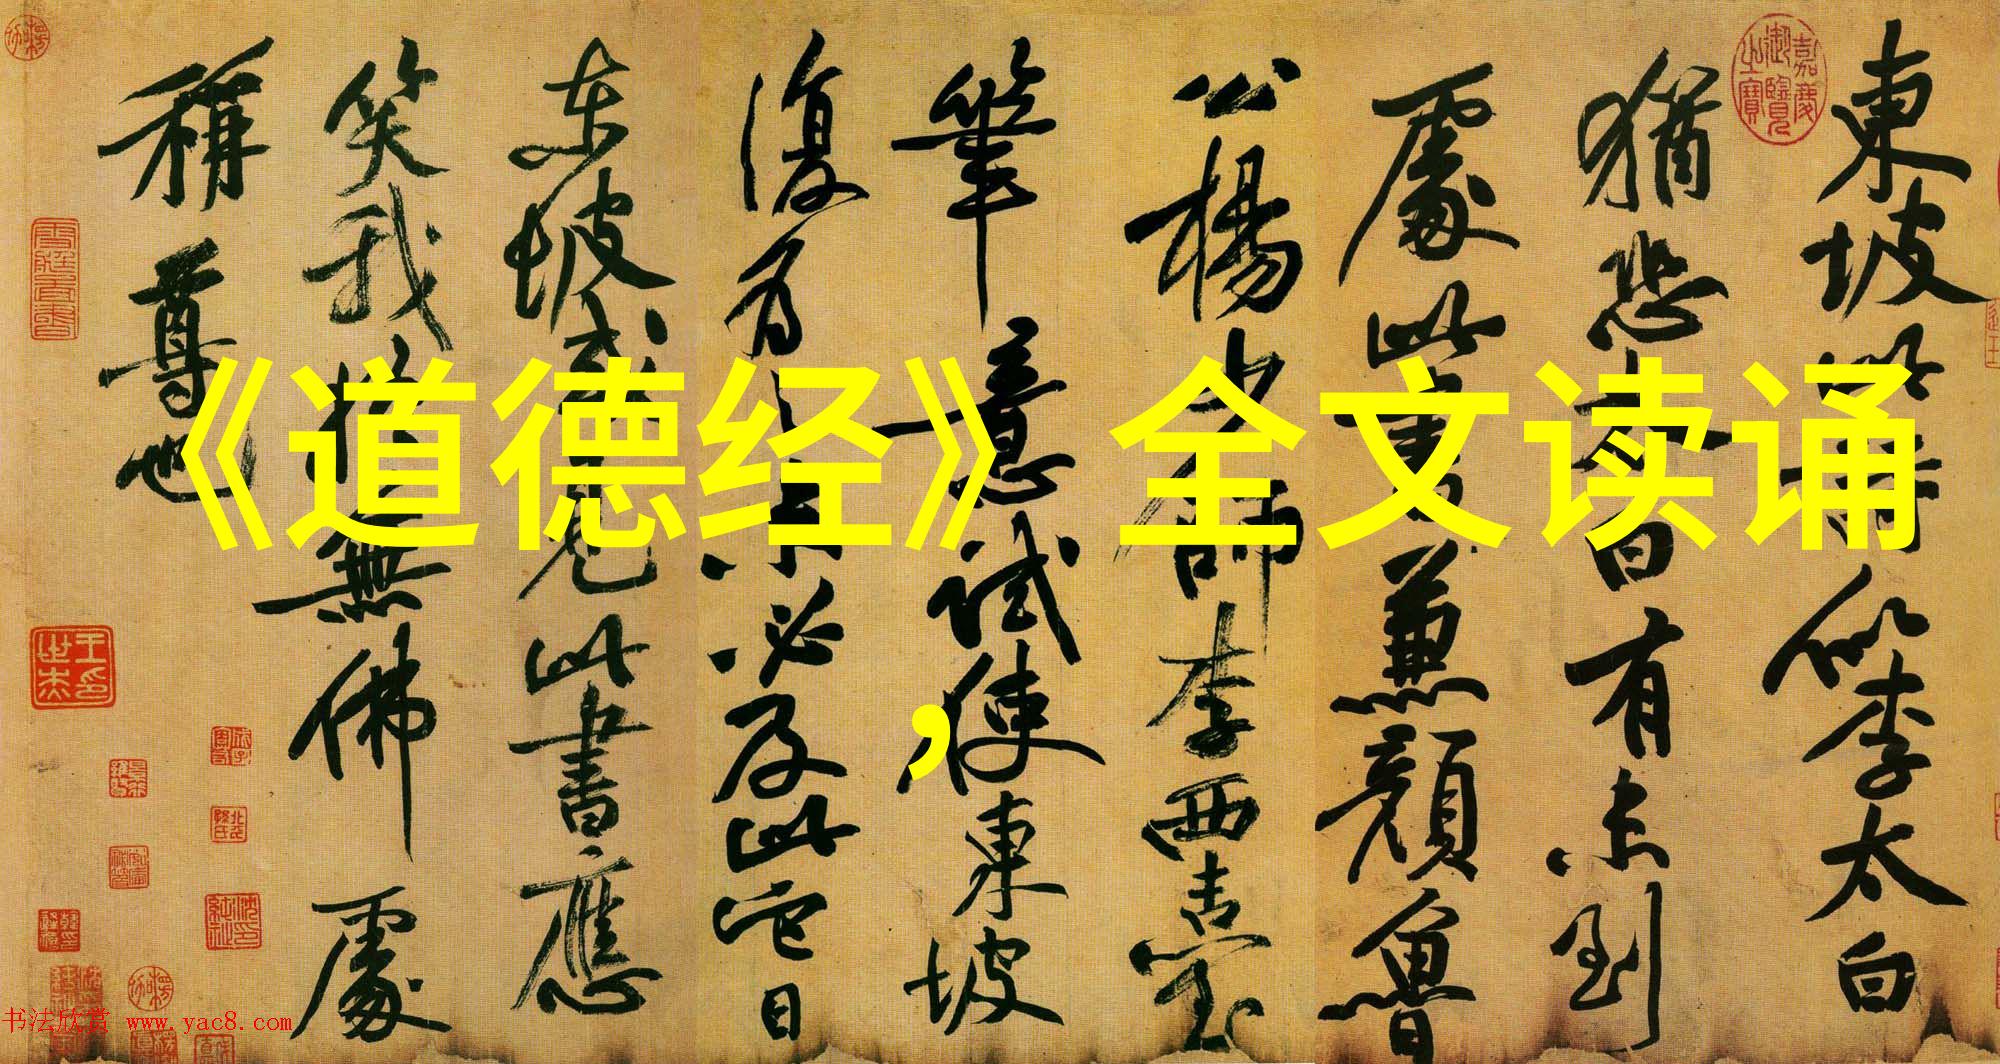 《道德经》全文读诵
,
東坡此詩似李太白
猶恐太白有未到
處此書兼顏魯
公楊少師李西臺
筆意試使東坡
復為之未必及此它日
東坡或見此書應
笑我於無佛處
稱尊也
嘉慶御覽之寶
王世杰印
书法欣赏 www.yac8.com